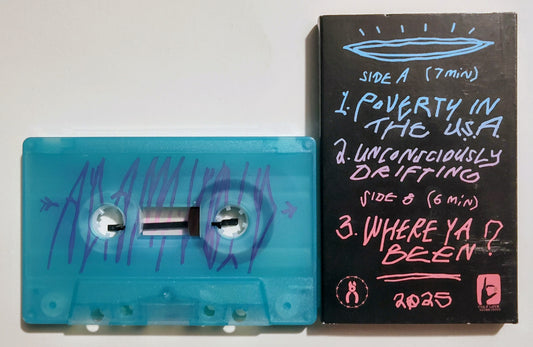 SIDE A (7 MIN)
1. POVERTY IN
THE U.S.A.
2. UNCONSCIOUSLY
DRIFTING
SIDE B (6 MIN)
3. WHERE YA
BEEN?
2025